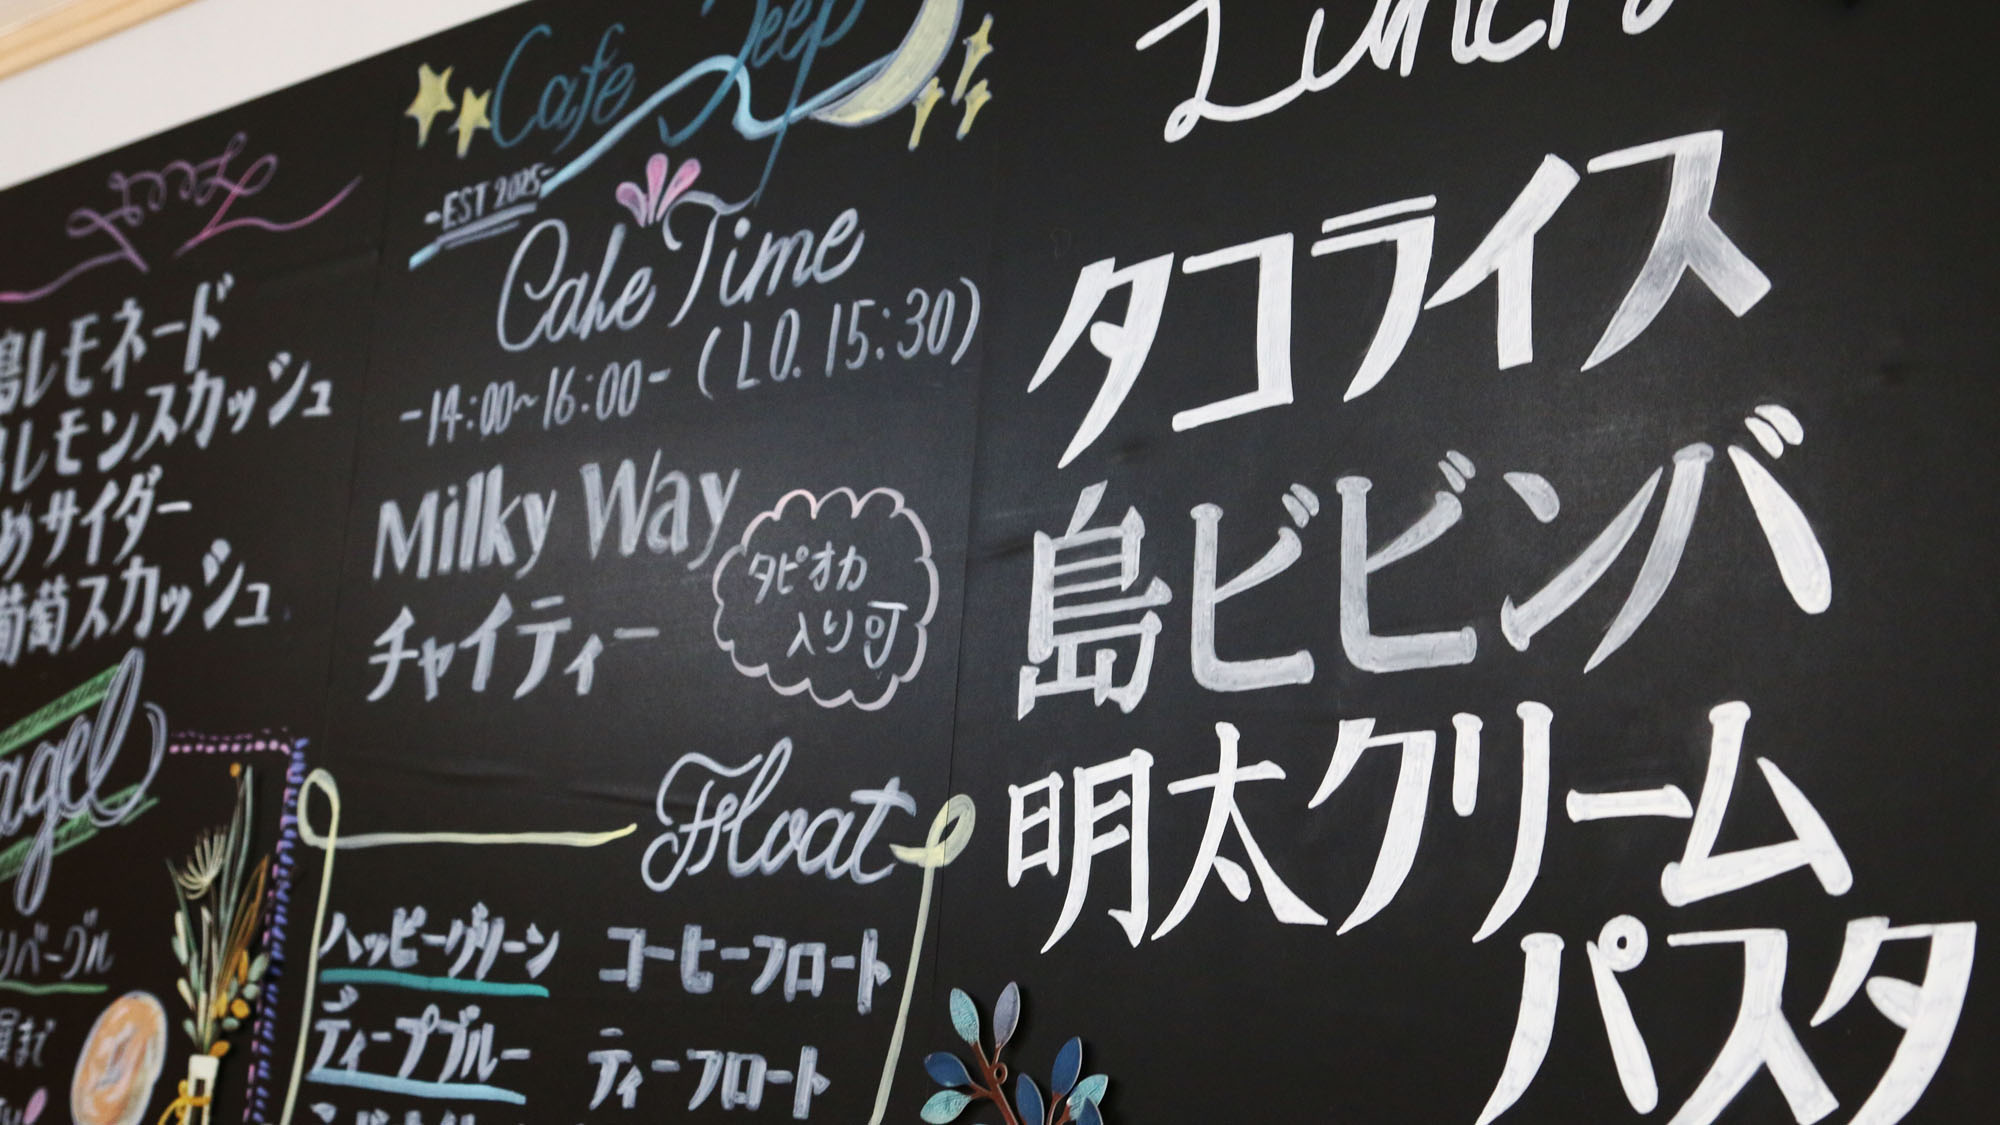 島レモネード
レモンスカッシュ
サイダー
葡萄スカッシュ
Cafe Jeep
-EST 2025-
Cake Time
-14:00~16:00- (LO. 15:30)
Milky Way
チャイティー
タピオカ
入り可
Float
ハッピーグリーン
コーヒーフロート
ディープブルー
ティーフロート
Lunch
タコライス
島ビビンバ
明太クリーム
パスタ